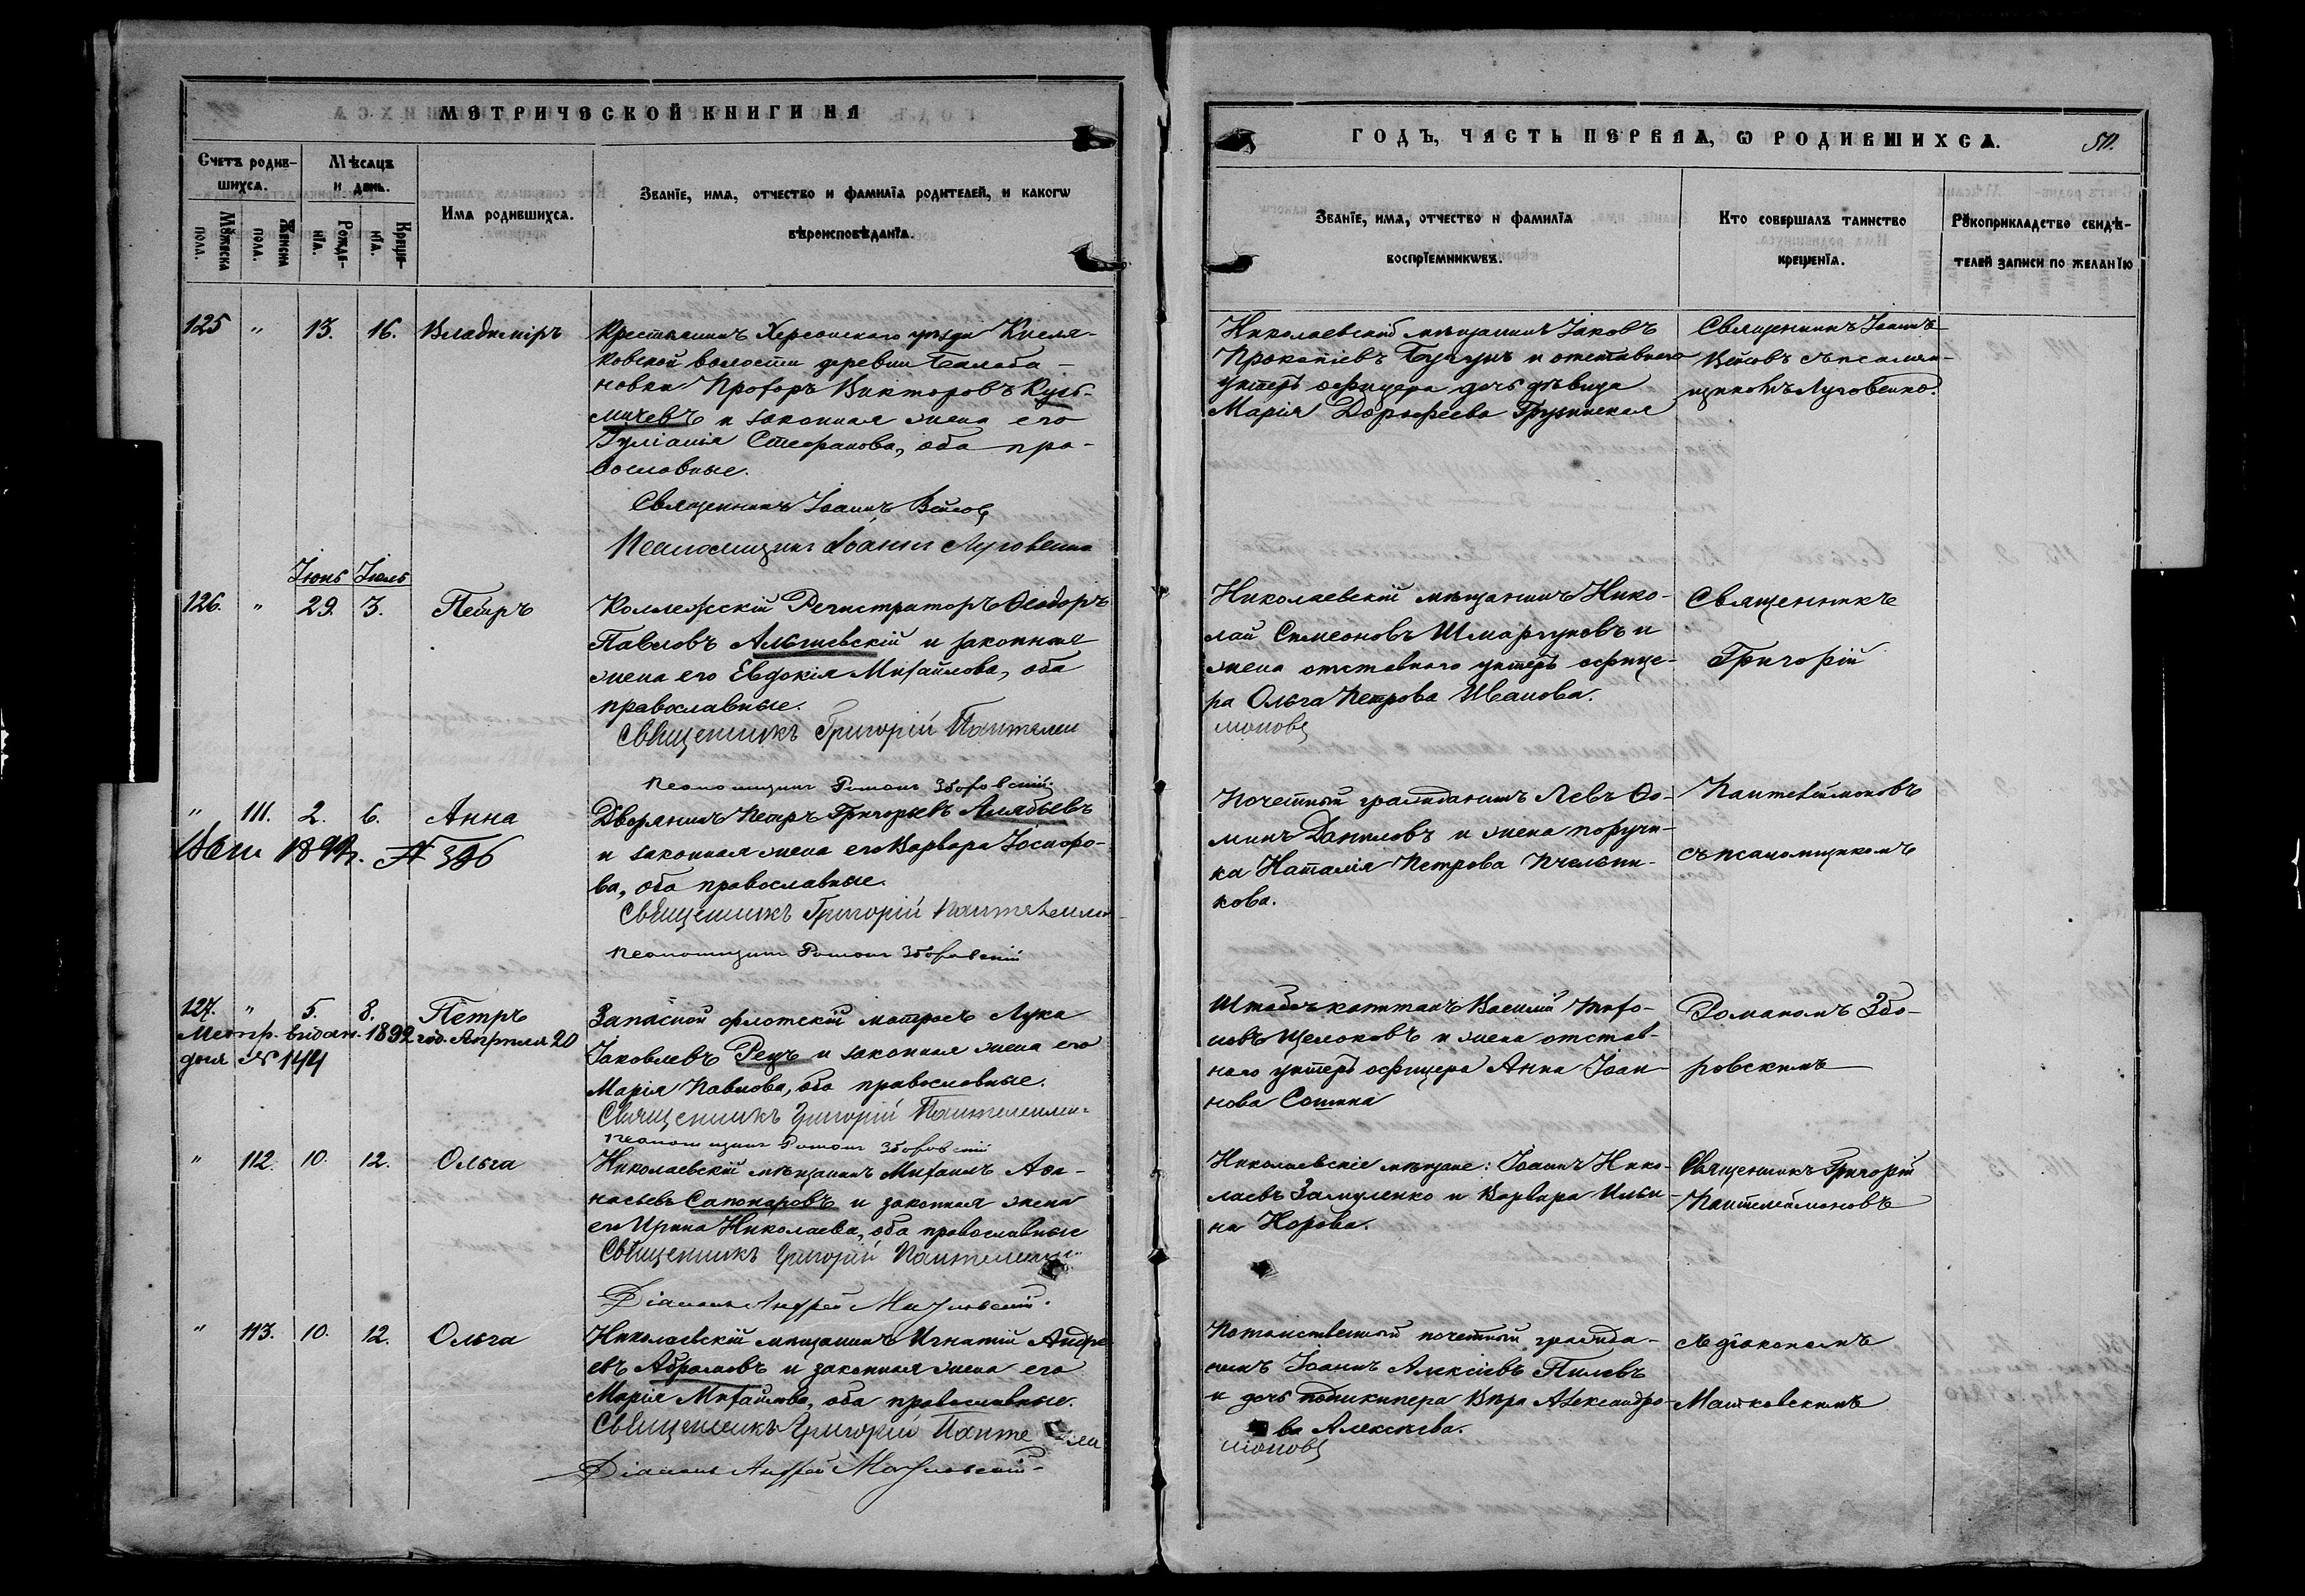 МЕТРИЧЕСКОЙ КНИГИ НА
Счетъ родив-
шихся.
Мѣсяцъ
и день.
Мужеска
пола.
Женска
пола.
Рожде-
нїя.
Креще-
нїя.
Имя родившихся.
Званїе, имя, отчество и фамилїя родителей, и какогѡ
вѣроисповѣданїя.
125 " 13. 16. Владиміръ
Крестьянинъ Херсонскаго уѣзда Кисля-
ковской волости деревни Балаба-
новки Прохоръ Викторовъ Кузь-
мичевъ и законная жена его
Іуліанія Стефанова, оба пра-
вославные.
Священникъ Іоаннъ
Псаломщикъ Іоаннъ Луговенко
Іюнь Іюль
126. " 29. 3. Петръ
Коллежскій Регистраторъ Ѳеодоръ
Павловъ и законная
жена его Евдокія Михайлова, оба
православные.
Священникъ Григорій Пантелеи
Псаломщикъ Романъ Зборовскій
" 111. 2. 6. Анна
Дворянинъ Петръ Григорьевъ Алябьевъ
и законная жена его Варвара
ва, оба православные.
Священникъ Григорій Пантелеимо
Псаломщикъ Романъ Зборовскій
1899г. № 396
127. " 5. 8. Петръ
Метр. выдан. 1892 год. Апрѣля 20
дня № 144
Запасной флотскій матросъ Лука
Іаковлевъ Рецъ и законная жена его
Марія Павлова, оба православные.
Священникъ Григорій Пантелеимо
Псаломщикъ Романъ Зборовскій
" 112. 10. 12. Ольга
Николаевскій мѣщанинъ Михаилъ Аѳа-
насьевъ Сапожаровъ и законная жена
его Ирина Николаева, оба православные
Священникъ Григорій Пантелеимо
Діаконъ Андрей
" 113. 10. 12. Ольга
Николаевскій мѣщанинъ Игнатій Андре
евъ Абрамовъ и законная жена его
Марія Михайлова, оба православные.
Священникъ Григорій Панте леи
Діаконъ Андрей
ГОДЪ, ЧАСТЬ ПЕРВАЯ, Ѡ РОДИВШИХСЯ.
50.
Званїе, имя, отчество и фамилїя
воспрїемникѡвъ.
Кто совершалъ таинство
крещенїя.
Рꙋкоприкладство свидѣ-
телей записи по желанїю
Николаевскій мѣщанинъ Іаковъ
Прокопіевъ и отставного
унтеръ офицера дочь дѣвица
Марія Дороѳеева Грушинская
Священникъ Іоаннъ
съ псалом-
щикомъ Луговенко.
Николаевскій мѣщанинъ Нико-
лай Симеоновъ Шмаргуновъ и
жена отставного унтеръ офице-
ра Ольга Петрова Иванова.
моновъ
Священникъ
Григорій
Почетный гражданинъ Левъ Ѳо-
минъ Даниловъ и жена поручи-
ка Наталія Петрова Пчельни-
кова.
Пантелеимоновъ
съ псаломщикомъ
Штабсъ капитанъ Василій Тихо-
новъ Щелоковъ и жена отстав-
ного унтеръ офицера Анна Іоан-
нова Сошина
Романомъ Збо-
ровскимъ
Николаевскіе мѣщане: Іоаннъ Нико-
лаевъ Замуленко и Варвара Ильи-
на Норова.
Священникъ Григорій
Пантелеимоновъ
Потомственный почетный гражда-
нинъ Іоаннъ Алексіевъ Пилевъ
и дочь подшкипера Вѣра Александро-
ва Алексѣева.
моновъ
съ діакономъ